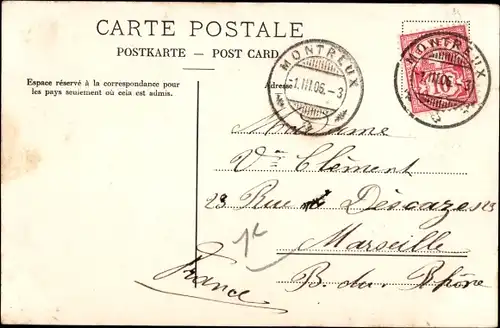 CARTE POSTALE
POSTKARTE — POST CARD
Espace réservé à la correspondance pour
les pays seulement où cela est admis.
Adresse
MONTREUX
-1.III.06.-3
MONTREUX
1.III.06. 3
10
Madame
Vᵉ Clément
23 Rue Decazes 23
Marseille
B. du. Rhône
France